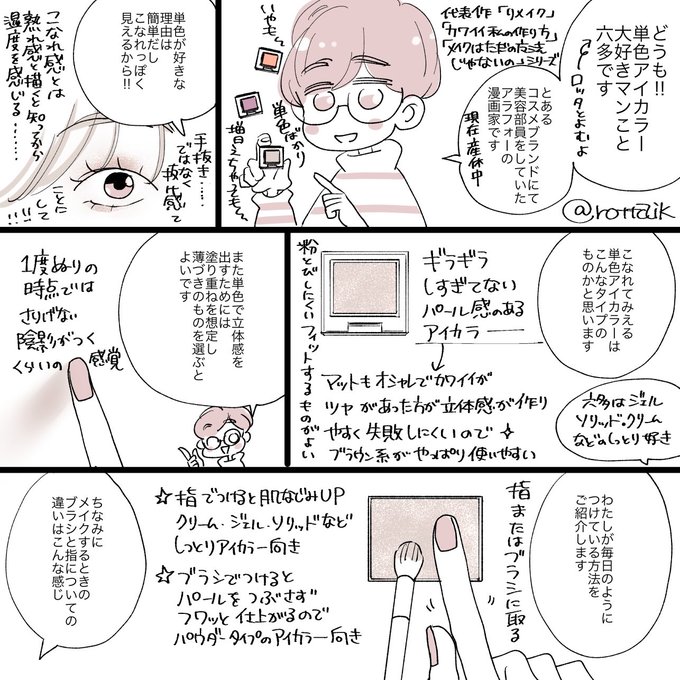 どうも!!
単色アイカラー
大好きマンこと
六多です
ロッタとよむよ
@rotta_ik
代表作「リメイク」
「カワイイ私の作り方」
「メイクはただの点さき
じゃないの」シリーズ
とある
コスメブランドにて
美容部員をしていた
アラフォーの
漫画家です
現在産休中
いやも〜
単色ばかり
増えちゃっても〜
単色が好きな
理由は
簡単だし
こなれっぽく
見えるから!!
手抜き……
ではなく
抜け感って
ことに
して!!!
こなれ感とは
熟れ感と描くと知ってから
湿度を感じる……
こなれてみえる
単色アイカラーは
こんなタイプの
ものかと思います
六多はジェル
ソリッド・クリーム
などのしっとり好き
ギラギラ
しすぎてない
パール感のある
アイカラー
マットもオシャレでカワイイが
ツヤがあった方が立体感が作り
やすく失敗しにくいので
ブラウン系がやっぱり使いやすい
粉とびしにくいフィットするものがよい
また単色で立体感を
出すためには
塗り重ねを想定し
薄づきのものを選ぶと
よいです
1度ぬりの
時点では
さりげない
陰影がつく
くらいの感覚
わたしが毎日のように
つけている方法を
ご紹介します
指またはブラシに取る
☆指でつけると肌なじみUP
クリーム・ジェル・ソリッドなど
しっとりアイカラー向き
☆ブラシでつけると
パールをつぶさず
フワッと仕上がるので
パウダータイプのアイカラー向き
ちなみに
メイクするときの
ブラシと指についての
違いはこんな感じ